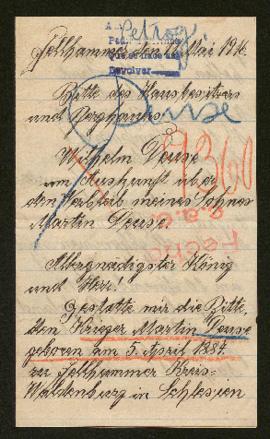 Petrog.
Fellhammer den 11. Mai 1916.
devolver
Bitte des Hausbesitzers
und Berghauers
Deuse
Wilhelm Deuse
um Auskunft über
den Verbleib meines Sohnes
Martin Deuse.
Allergnädigster König
und Herr!
Gestatte mir die Bitte,
den Krieger Martin Deuse
geboren am 5. April 1884.
zu Fellhammer Kreis-
Waldenburg in Schlesien